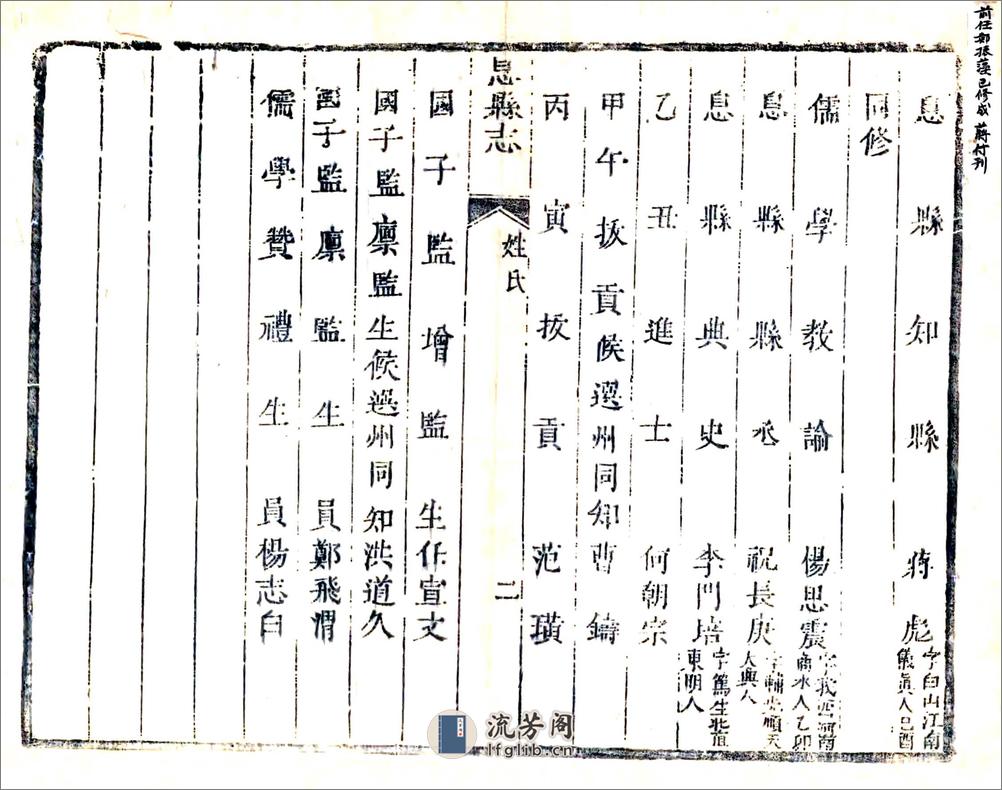 前任邵振藻已修成 蔣付刊
息縣知縣蔣彪 字白山江南儀眞人己酉
同修
儒學教諭楊思震 河南商水人乙卯
息縣縣丞祝長庚 字輔 順天大興人
息縣典史李門培 字篤生北直東明人
乙丑進士何朝宗
甲午拔貢候選州同知曹鑄
丙寅拔貢范璜
息縣志
姓氏
二
國子監增監生任宣文
國子監廪監生候選州同知洪道久
國子監廪監生員鄭飛渭
儒學贊禮生員楊志白
流芳阁
lfglib.cn